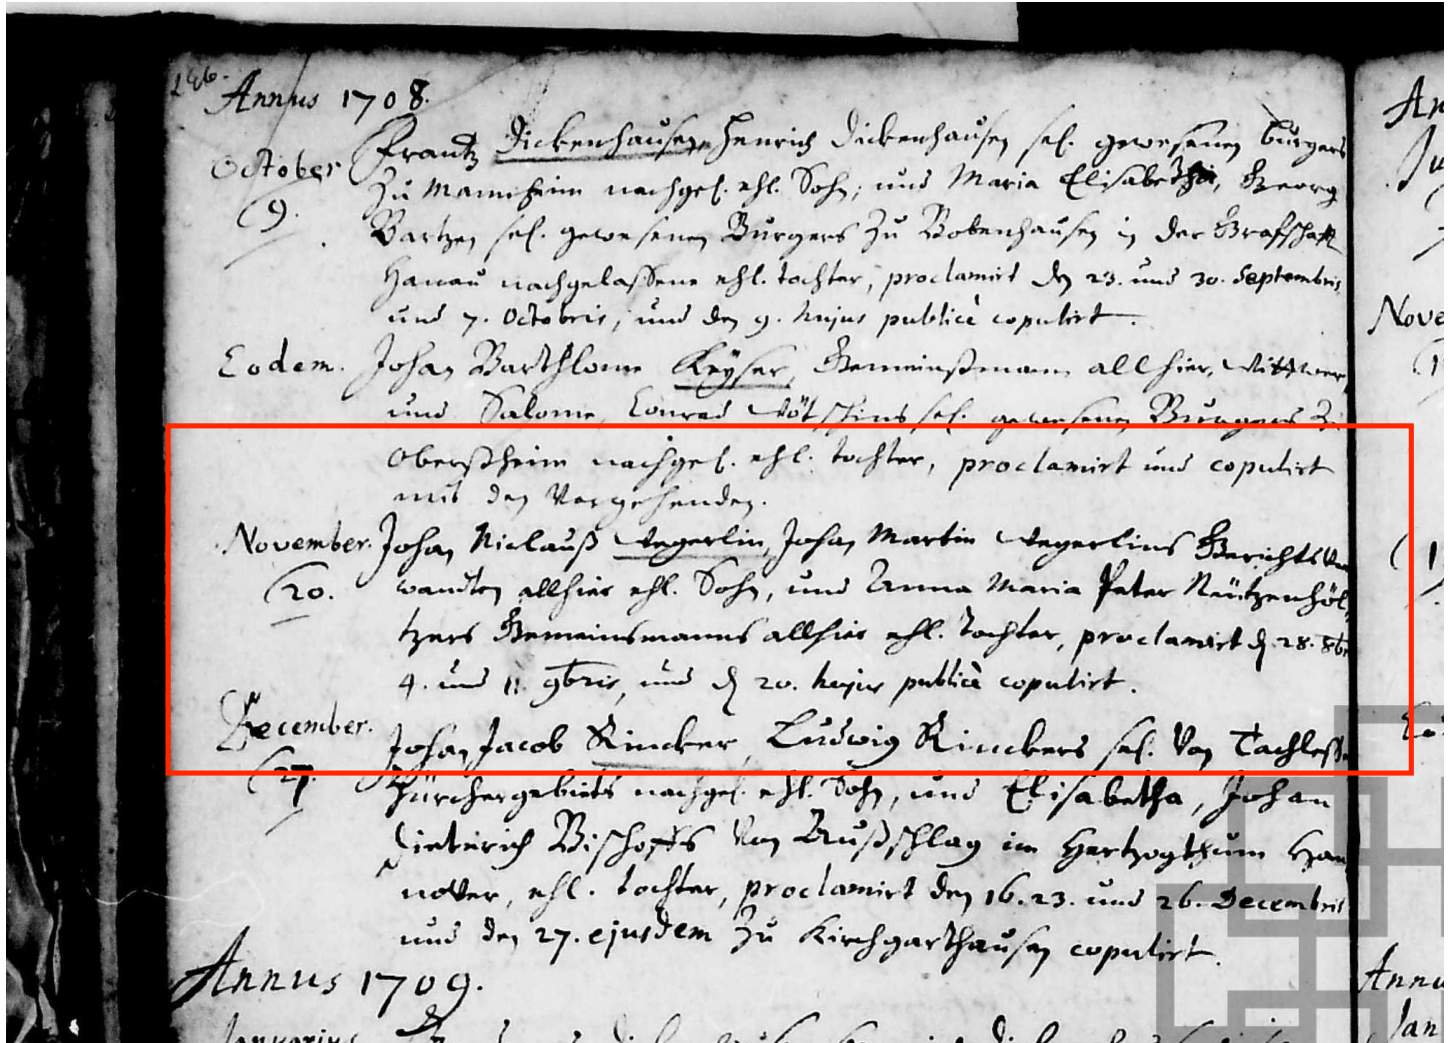 Annus 1708.
October Frantz Dickenhausen, Henrich Dickenhausen sel. gewesenen burgers
9. Zu Mannheim nachgel. ehl. Sohn, und Maria Elisabetha, Georg
Bartzen sel. gewesenen Burgers Zu Bobenhausen in der Grafschafft
Hanau nachgelassene ehl. tochter, proclamirt den 23. und 30. Septembris,
und 7. Octobris, und den 9. hujus publicè copulirt.
Eodem. Johan Barthlome Keyser, Gemeinßmann allhier, Wittwer,
und Salome, Conrad sel. gewesenen Burgers Zu
Oberßheim nachgel. ehl. tochter, proclamirt und copulirt
mit den Vorgehenden.
November. Johan Niclauß Wegerlin, Johan Martin Wegerlins Gerichts Ver
20. wandten allhier ehl. Sohn, und Anna Maria Peter Neützenhöl,
tzers Gemeinsmanns allhier ehl. tochter, proclamirt d. 28. 8br
4. und 11. 9bris, und d. 20. hujus publicè copulirt.
December. Johan Jacob Rincker, Ludwig Rinckers sel. Von
27. Zürchergebiets nachgel. ehl. Sohn, und Elisabetha, Johan
Dieterich Bischoffs Von Außschlag im Hertzogthum Han
nover, ehl. tochter, proclamirt den 16. 23. und 26. Decembris
und den 27. ejusdem Zu Kirchgarthausen copulirt.
Annus 1709.
Januarius